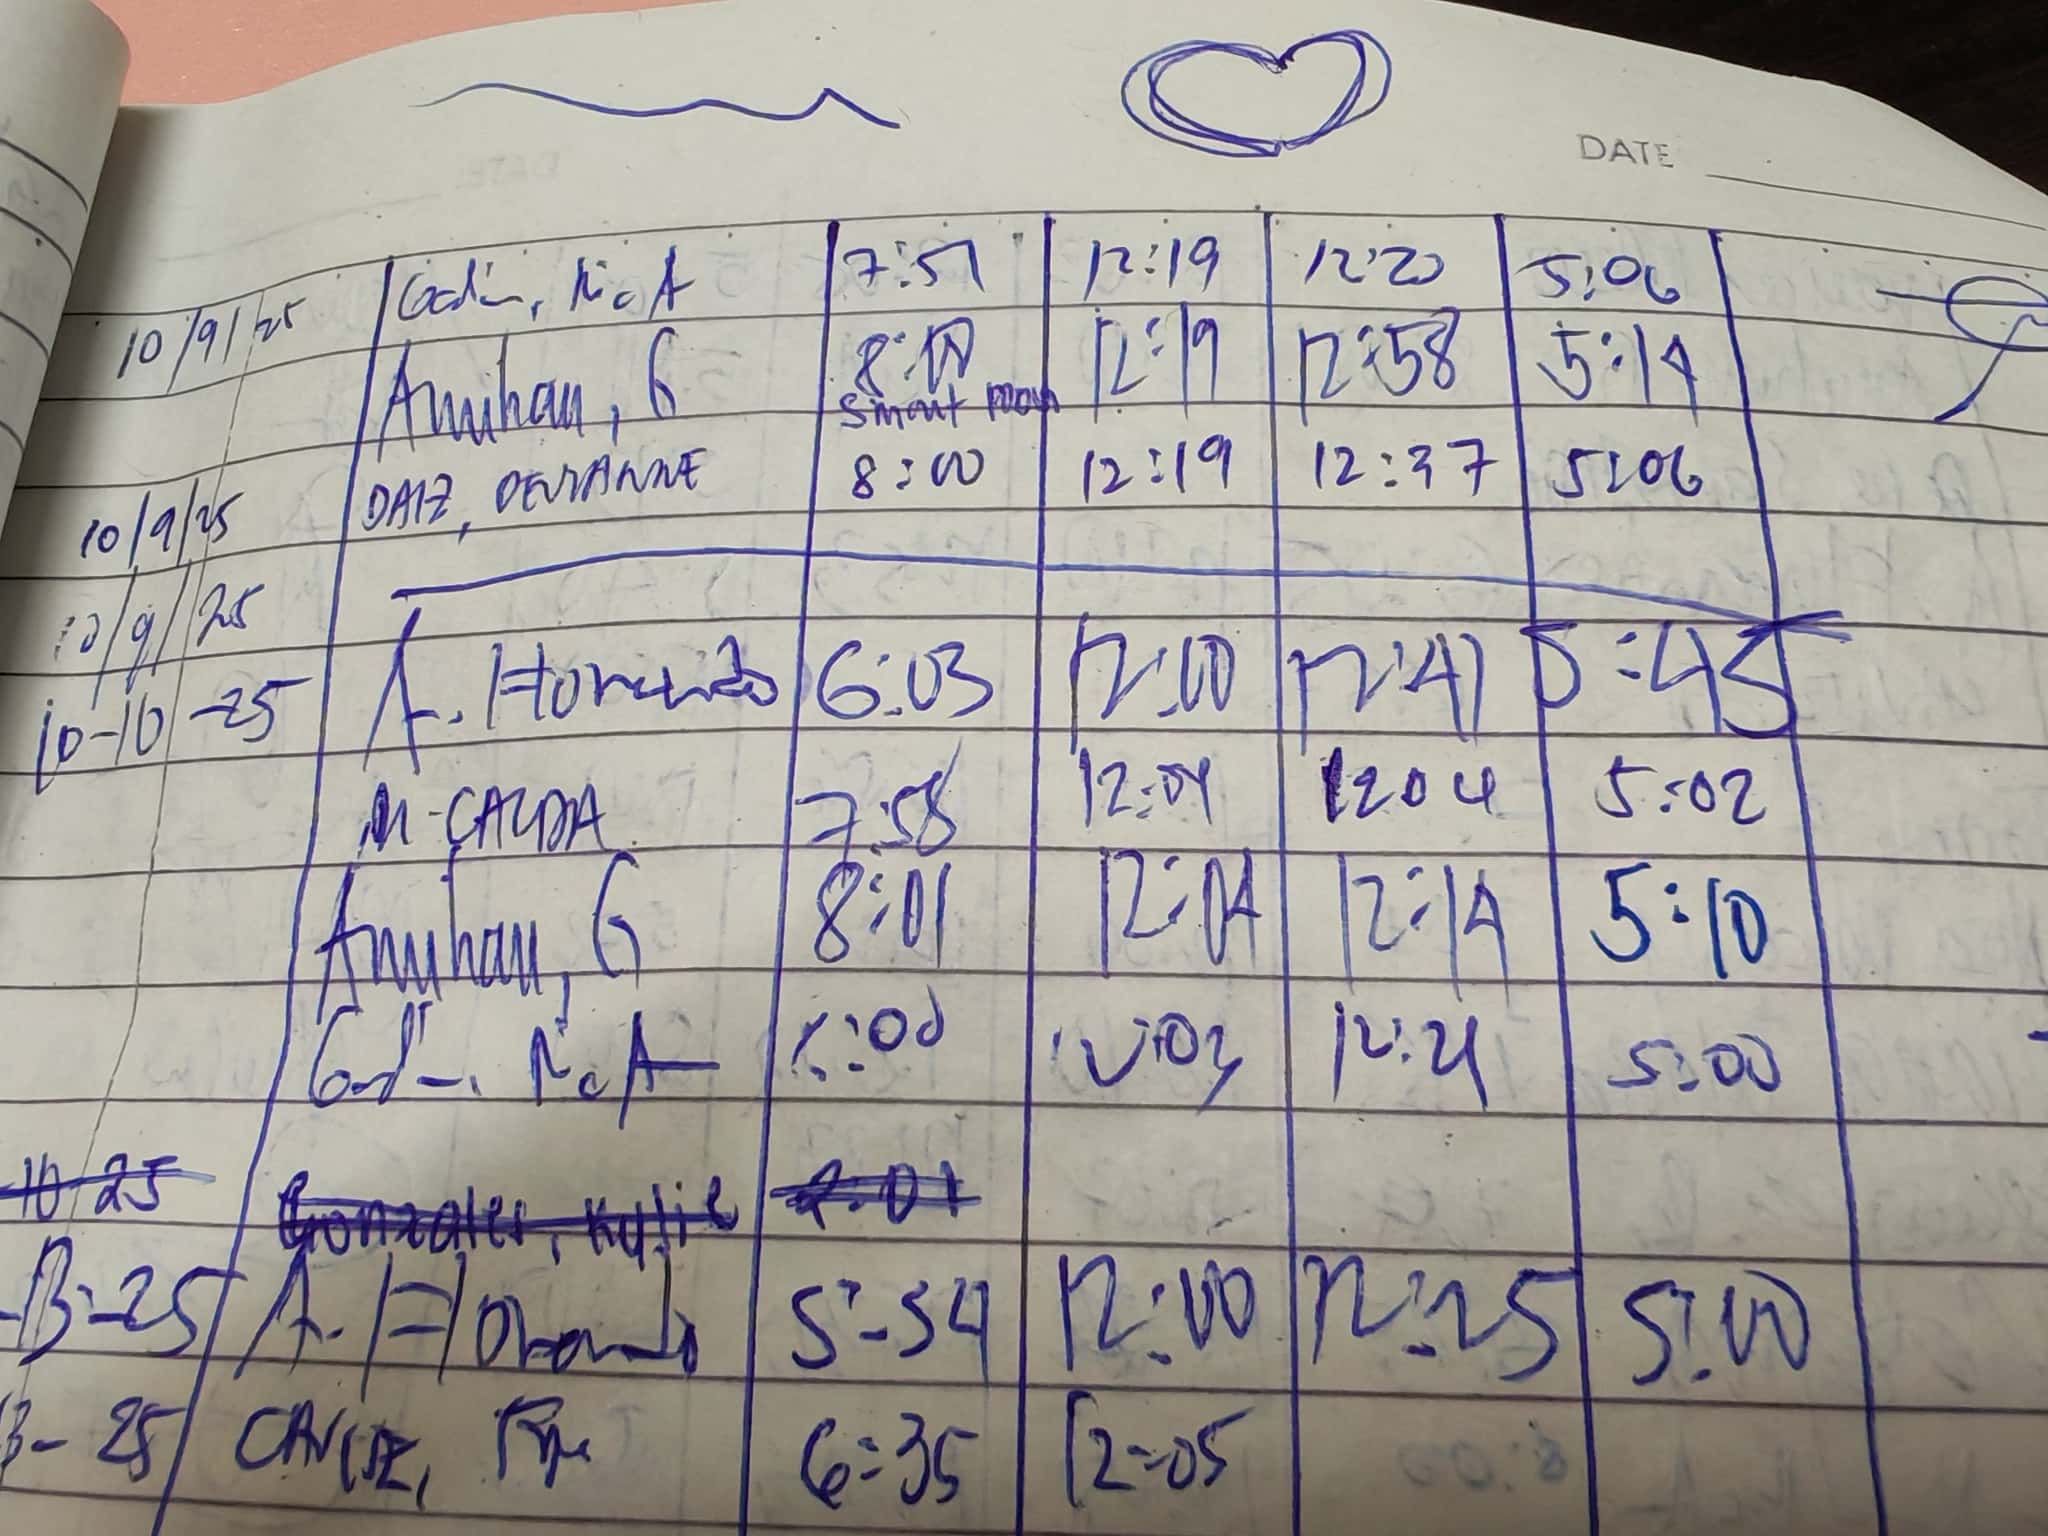 DATE
10/9/25 Godin, N. A 7:51 12:19 12:20 5:06
Amihan, G 8:00 12:19 12:58 5:14
Smart room
10/9/25 DAIZ, 8:00 12:19 12:37 5:06
10/9/25
10-10-25 A. Hornando 6:03 12:00 12:41 5:45
M-CALDA 7:58 12:04 1204 5:02
Amihan, G 8:01 12:04 12:14 5:10
Godin, N. A :00 12:03 12:21 5:00
10-25 Gonzales, Kylie
-13-25 A. Hornando 5:54 12:00 12:25 5:00
13-25 6:35 12:05